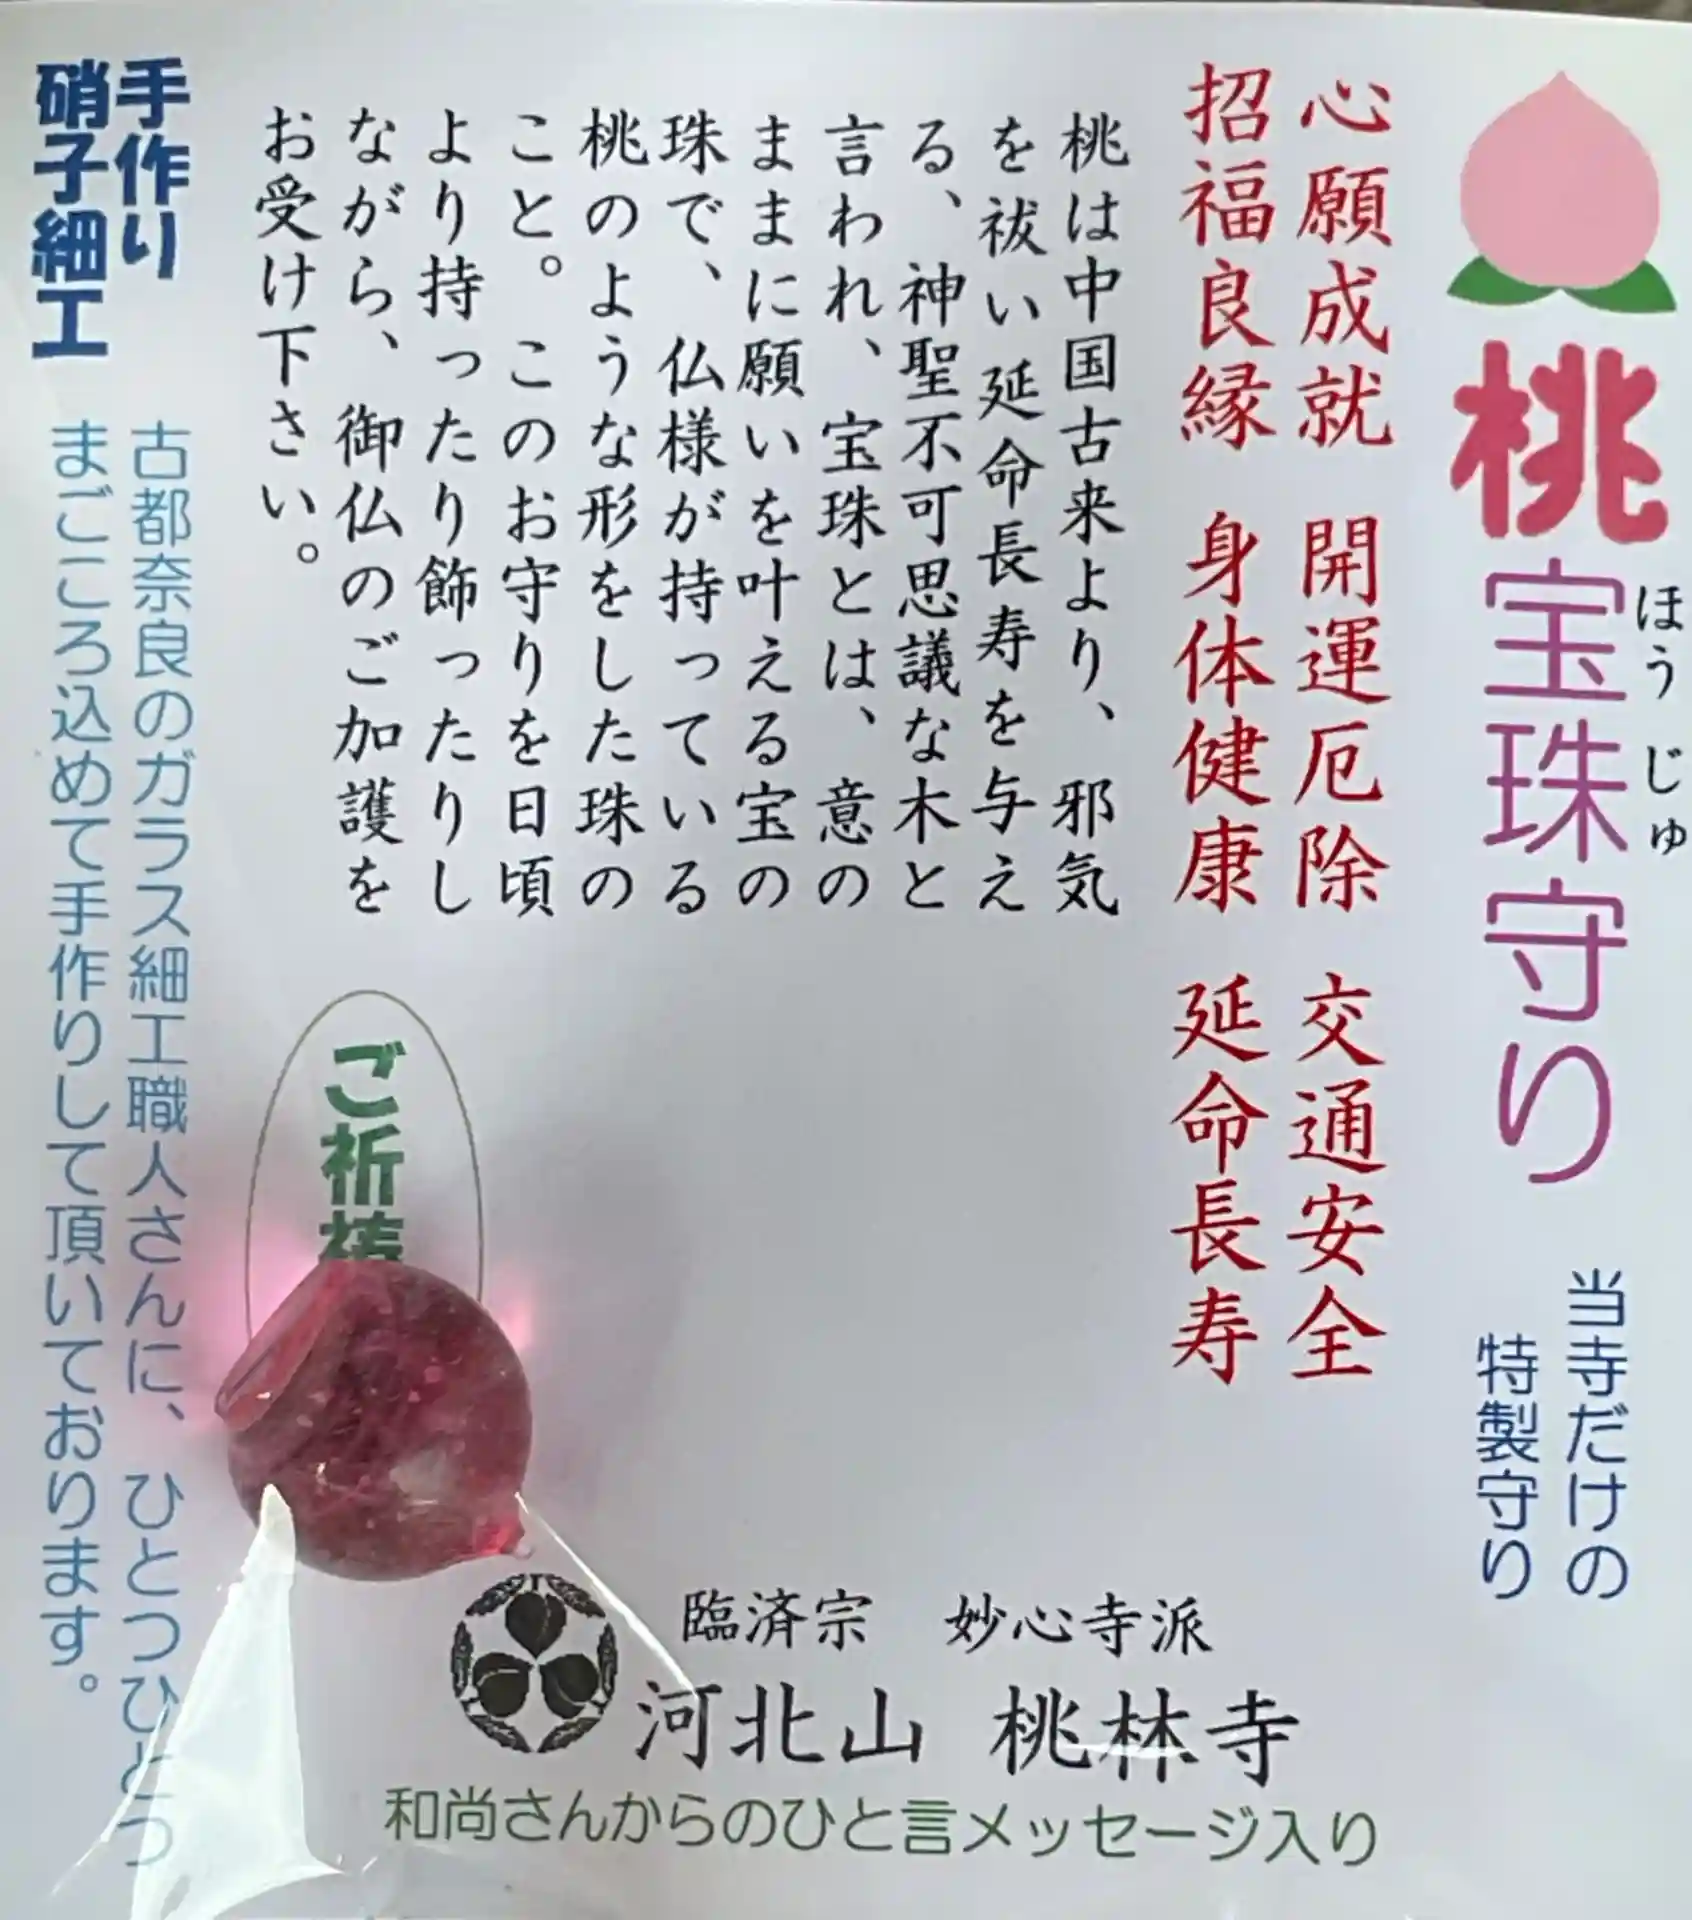 桃宝珠守り
ほうじゅ
当寺だけの
特製守り
心願成就 開運厄除 交通安全
招福良縁 身体健康 延命長寿
桃は中国古来より、邪気
を祓い延命長寿を与え
る、神聖不可思議な木と
言われ、宝珠とは、意の
ままに願いを叶える宝の
珠で、仏様が持っている
桃のような形をした珠の
こと。このお守りを日頃
より持ったり飾ったりし
ながら、御仏のご加護を
お受け下さい。
ご祈
手作り
硝子細工
古都奈良のガラス細工職人さんに、ひとつひとつ
まごころ込めて手作りして頂いております。
臨済宗 妙心寺派
河北山 桃林寺
和尚さんからのひと言メッセージ入り